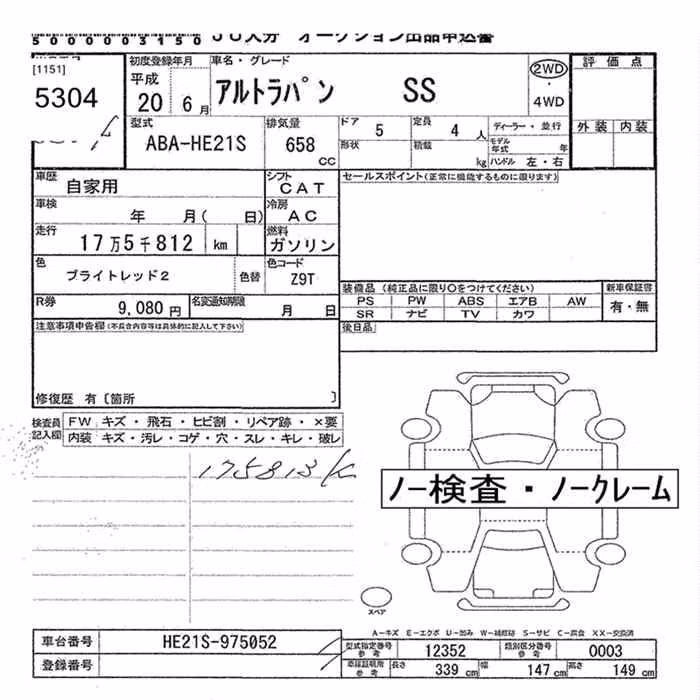 5000003150 JU大分 オークション出品申込書
[1151]
5304
初度登録年月
平成
20 6月
車名・グレード
アルトラパン SS
2WD
・
4WD
評価点
外装 内装
型式
ABA-HE21S
排気量
658 cc
ドア 5
定員 4 人
形状
積載 kg
ディーラー・並行
モデル年式 年
ハンドル 左・右
車歴 自家用
シフト CAT
車検 年 月( 日)
冷房 AC
走行 17万5千812 km
燃料 ガソリン
色 ブライトレッド2 色替
色コード Z9T
R券 9,080円
名変通知期限 月 日
セールスポイント(正常に機能するものに限ります)
装備品(純正品に限り○をつけてください)
PS PW ABS エアB AW
SR ナビ TV カワ
新車保証書
有・無
後日品
注意事項申告欄(不具合内容等は具体的に記入して下さい)
修復歴 有〔箇所 〕
検査員記入欄
FW キズ・飛石・ヒビ割・リペア跡・×要
内装 キズ・汚レ・コゲ・穴・スレ・キレ・破レ
175813K
ノー検査・ノークレーム
スペア
A-キズ E-エクボ U-凹み W-補修跡 S-サビ C-腐食 XX-交換済
車台番号 HE21S-975052
登録番号
型式指定番号参考 12352
類別区分番号参考 0003
車検証明所参考 長さ 339 cm 幅 147 cm 高さ 149 cm